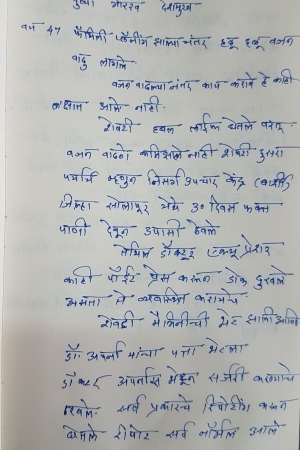 पुष्पा गोरख देशमुख
वय 47 फॅमिली प्लॅनींग झाल्या नंतर हळू हळू वजन
वाढू लागले
वजन वाढल्या नंतर काय करावे हे काही
कळत नाही.
शेवटी हर्बल लाईफ घेतले परंतु
वजन वाढणे कमि झाले नाही शेवटी दुसरा
पर्याय म्हणून निसर्ग उपचार केंद्र (बार्शी)
जिल्हा सोलापूर येथे ३० दिवस फक्त
पाणी देवून उपाशी ठेवले
तेथिल डॉक्टर एक्यूप्रेशर
काही पॉईंट प्रेस करून डोक दुखले
असता ते व्यवस्थित करायचे
शेवटी मैत्रिणीची भेट झाली आणि
डॉ. अपर्णा यांचा पत्ता भेटला
डॉक्टर अपर्णास भेटून सर्जरी करण्याचे
ठरवले. सर्व प्रकारचे रिपोर्टींग करून
घेतले रीपोर्ट सर्व नॉर्मल आले